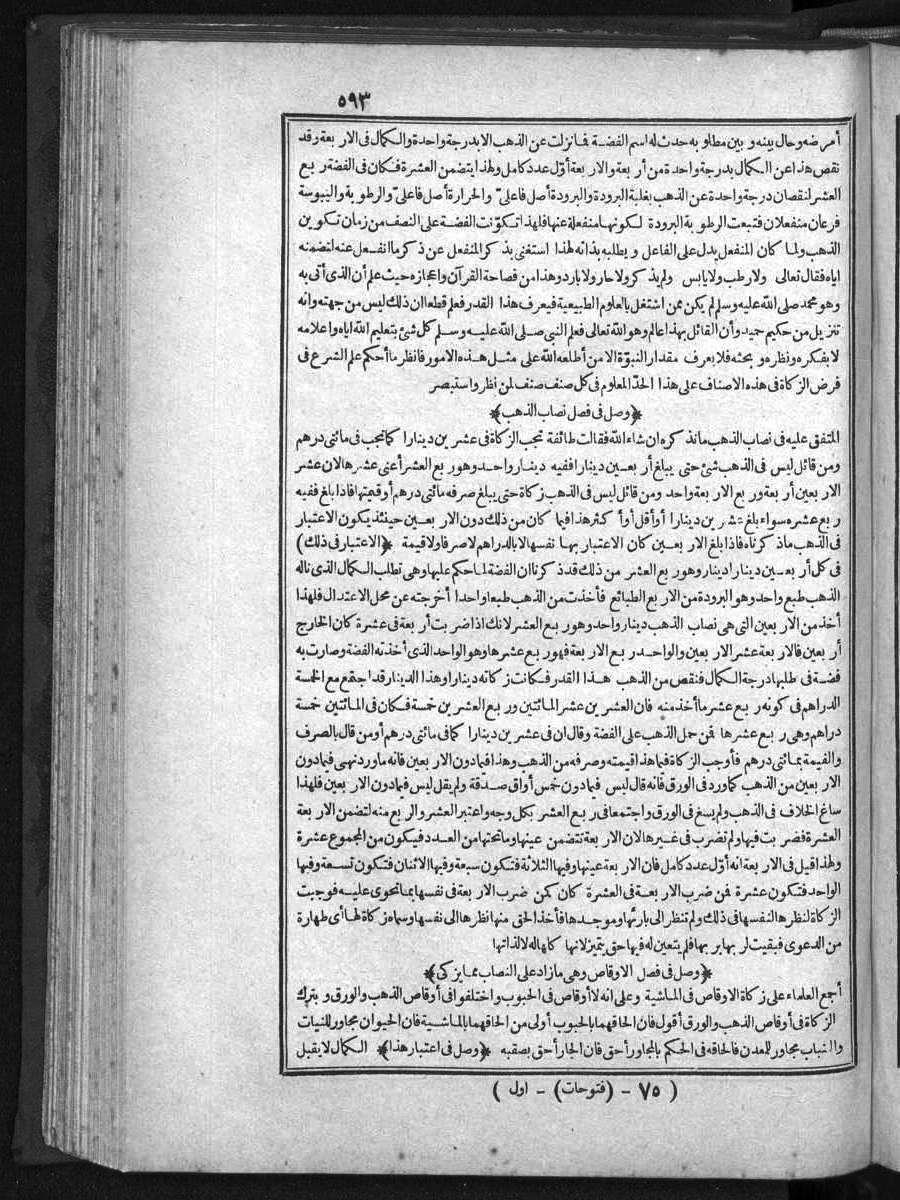 ٥٩٣
أمرضه وحال بينه وبين مطلوبه حدث له اسم الفضة فما نزلت عن الذهب الا بدرجة واحدة والكمال فى الاربعة وقد
نقص هذا عن الكمال بدرجة واحدة من أربعة والاربعة أول عدد كامل ولهذا يتضمن العشرة فكان فى الفضة ربع
العشر لنقصان درجة واحدة عن الذهب بغلبة البرودة والبرودة أصل فاعلىّ والحرارة أصل فاعلىّ والرطوبة واليبوسة
فرعان منفعلان فتبعت الرطوبة البرودة لكونها منفعلة عنها فلهذا تكوّنت الفضة على النصف من زمان تكوين
الذهب ولما كان المنفعل يدل على الفاعل ويطلبه بذاته لهذا استغنى بذكر المنفعل عن ذكر ما انفعل عنه لتضمنه
اياه فقال تعالى ولا رطب ولا يابس ولم يذكر ولا حار ولا بارد وهذا من فصاحة القرآن واعجازه حيث علم أن الذى أتى به
وهو محمد صلى الله عليه وسلم لم يكن ممن اشتغل بالعلوم الطبيعية فيعرف هذا القدر فعلم قطعا ان ذلك ليس من جهته وانه
تنزيل من حكيم حميد وأن القائل بهذا عالم وهو الله تعالى فعلم النبى صلى الله عليه وسلم كل شئ بتعليم الله اياه واعلامه
لا بفكره ونظره وبحثه فلا يعرف مقدار النبوّة الا من أطلعه الله على مثل هذه الامور فانظر ما أحكم علم الشرع فى
فرض الزكاة فى هذه الاصناف على هذا الحدّ المعلوم فى كل صنف صنف لمن نظر واستبصر
﴿وصل فى فصل نصاب الذهب﴾
المتفق عليه فى نصاب الذهب ما نذكره ان شاء الله فقالت طائفة تجب الزكاة فى عشرين دينارا كما تجب فى مائتى درهم
ومن قائل ليس فى الذهب شئ حتى يبلغ أربعين دينارا ففيه دينار واحد وهو ربع العشر أعنى عشرها لان عشر
الاربعين أربعة وربع الاربعة واحد ومن قائل ليس فى الذهب زكاة حتى يبلغ صرفه مائتى درهم أو قيمتها فاذا بلغ ففيه
ربع عشره سواء بلغ عشرين دينارا أو أقل أو أكثر هذا فيما كان من ذلك دون الاربعين حينئذ يكون الاعتبار
فى الذهب ما ذكرناه فاذا بلغ الاربعين كان الاعتبار بها نفسها لا بالدراهم لا صرفا ولا قيمة ﴿الاعتبار فى ذلك﴾
فى كل أربعين دينارا دينار وهو ربع العشر من ذلك قد ذكرنا ان الفضة لما حكم عليها وهى تطلب الكمال الذى ناله
الذهب طبع واحد وهو البرودة من الاربع الطبائع فأخذت من الذهب طبعا واحدا أخرجته عن محل الاعتدال فلهذا
أخذ من الاربعين التى هى نصاب الذهب دينار واحد وهو ربع العشر لانك اذا ضربت أربعة فى عشرة كان الخارج
أربعين فالاربعة عشر الاربعين والواحد ربع الاربعة فهو ربع عشرها وهو الواحد الذى أخذته الفضة وصارت به
فضة فى طلبها درجة الكمال فنقص من الذهب هذا القدر فكانت زكاته دينارا وهذا الدينار قد اجتمع مع الخمسة
الدراهم فى كونه ربع عشر ما أخذ منه فان العشرين عشر المائتين وربع العشرين خمسة فكان فى المائتين خمسة
دراهم وهى ربع عشرها فمن حمل الذهب على الفضة وقال ان فى عشرين دينارا كما فى مائتى درهم أو من قال بالصرف
والقيمة بمائتى درهم فأوجب الزكاة فيما هذا قيمته وصرفه من الذهب وهذا فيما دون الاربعين فانه ما ورد نهى فيما دون
الاربعين من الذهب كما ورد فى الورق فانه قال ليس فيما دون خمس أواق صدقة ولم يقل ليس فيما دون الاربعين فلهذا
ساغ الخلاف فى الذهب ولم يسغ فى الورق واجتمعا فى ربع العشر بكل وجه واعتبر العشر والربع منه لتضمن الاربعة
العشرة فضربت فيها ولم تضرب فى غيرها لان الاربعة تتضمن عينها وما تحتها من العدد فيكون من المجموع عشرة
ولهذا قيل فى الاربعة انه أوّل عدد كامل فان الاربعة عينها وفيها الثلاثة فتكون سبعة وفيها الاثنان فتكون تسعة وفيها
الواحد فتكون عشرة فمن ضرب الاربعة فى العشرة كان كمن ضرب الاربعة فى نفسها بما تحوى عليه فوجبت
الزكاة لنظرها لنفسها فى ذلك ولم تنظر الى بارئها وموجدها فأخذ الحق منها نظرها الى نفسها وسماه زكاة لها أى طهارة
من الدعوى فبقيت لربها بربها فلم يتعين له فيها حق يتميز لانها كلها له لا لذاتها
﴿وصل فى فصل الاوقاص وهى ما زاد على النصاب مما يزكى﴾
أجمع العلماء على زكاة الاوقاص فى الماشية وعلى انه لا أوقاص فى الحبوب واختلفوا فى أوقاص الذهب والورق وبترك
الزكاة فى أوقاص الذهب والورق أقول فان الحاقهما بالحبوب أولى من الحاقهما بالماشية فان الحيوان مجاور للنبات
والنبات مجاور للمعدن فالحاقه فى الحكم بالمجاور أحق فان الجار أحق بصقبه ﴿وصل فى اعتبار هذا﴾ الكمال لا يقبل
( ٧٥ - (فتوحات) - اول )